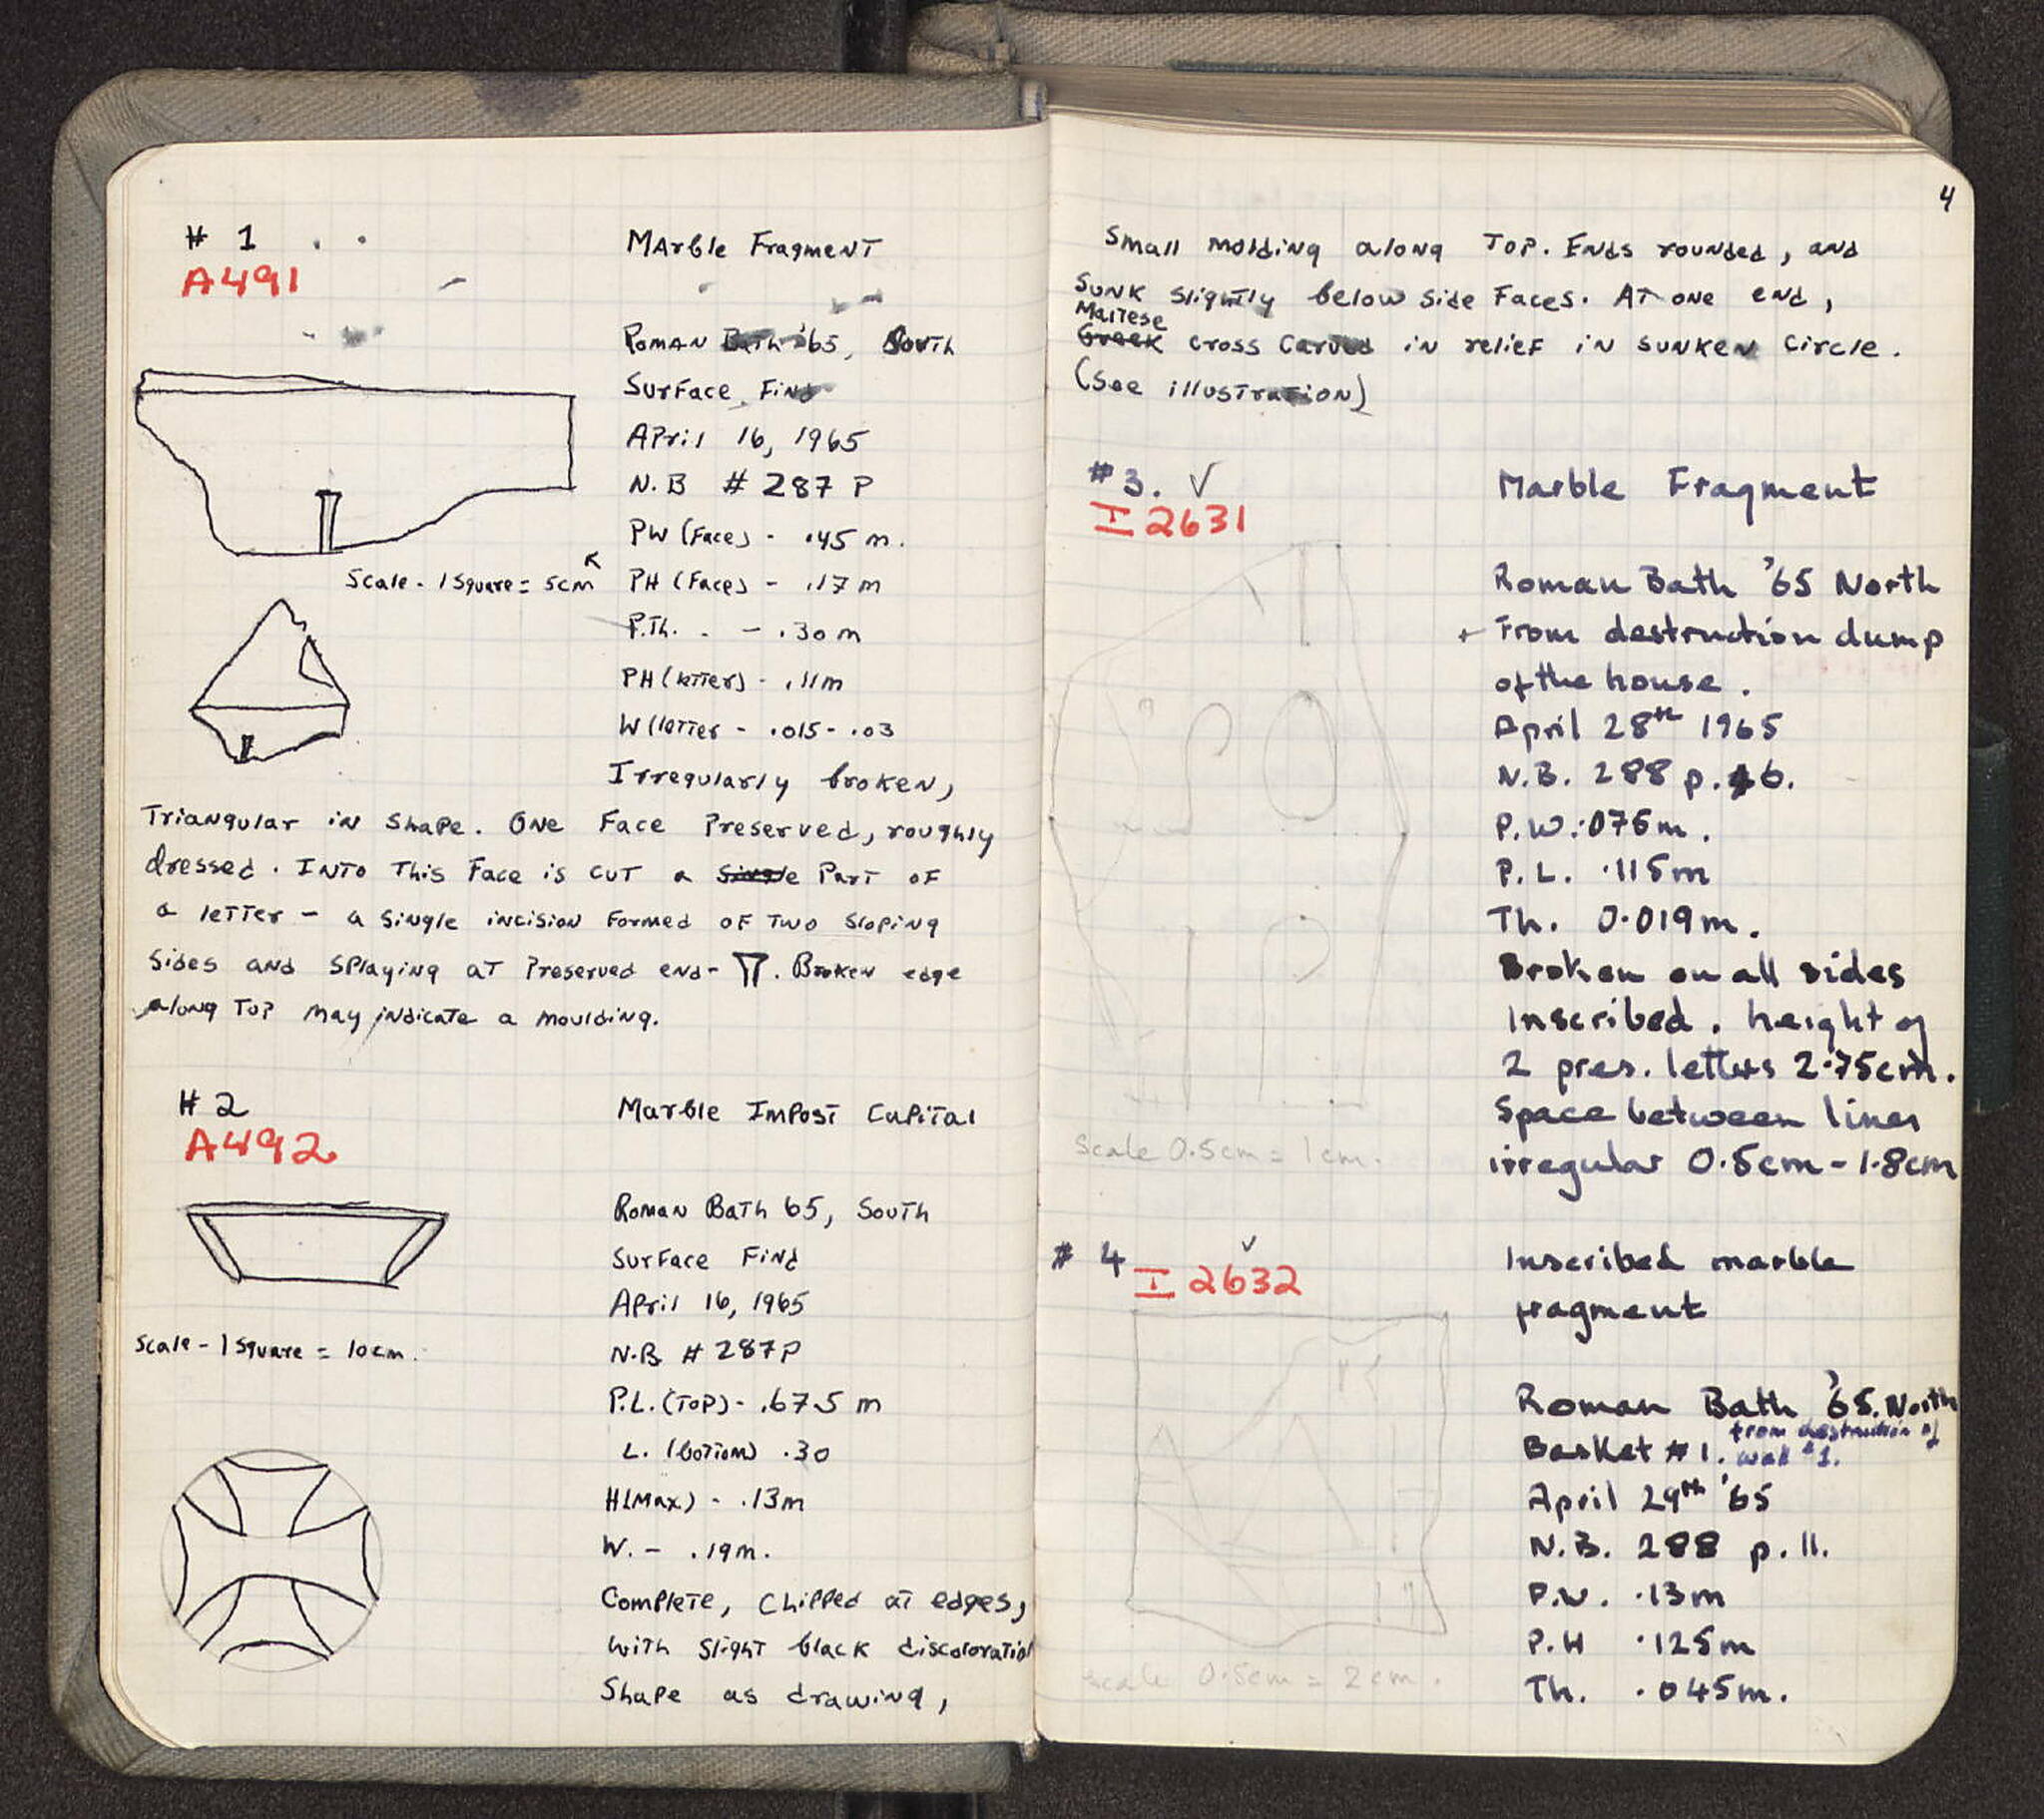 # 1
A491
Marble Fragment
Roman Bath '65, South
Surface Find
April 16, 1965
N.B # 287 P
PW (Face) - .45 m.
Scale - 1 Square = 5cm
PH (Face) - .17 m
P.Th. - .30 m
PH (letter) - .11m
W (letter - .015 - .03
Irregularly broken,
Triangular in shape. One Face Preserved, roughly
dressed. Into This Face is cut a Single Part of
a letter - a single incision formed of two sloping
sides and splaying at Preserved end - . Broken edge
along Top may indicate a moulding.
# 2
A492
Marble Impost Capital
Roman Bath 65, South
Surface Find
April 16, 1965
Scale - 1 Square = 10cm.
N.B # 287P
P.L. (Top) - .675 m
L. (bottom) .30
H(Max) - .13m
W. - .19m.
Complete, chipped at edges,
with slight black discoloration
Shape as drawing,
4
Small molding along Top. Ends rounded, and
sunk slightly below side Faces. At one end,
Maltese
Greek cross carved in relief in sunken circle.
(See illustration)
#3. ✓
I 2631
Marble Fragment
Roman Bath '65 North
From destruction dump
of the house.
April 28th 1965
N.B. 288 p. 6.
P.W. .075m.
P.L. .115m
Th. 0.019m.
Broken on all sides
Inscribed. height of
2 pres. letters 2.75cm.
Space between lines
irregular 0.5cm - 1.8cm
Scale 0.5cm = 1cm.
# 4 ✓
I 2632
Inscribed marble
fragment
Roman Bath '65. North
Basket #1. from destruction of
wall #1.
April 29th '65
N.B. 288 p. 11.
P.W. .13m
P.H .125m
Th. .045m.
scale 0.5cm = 2cm.